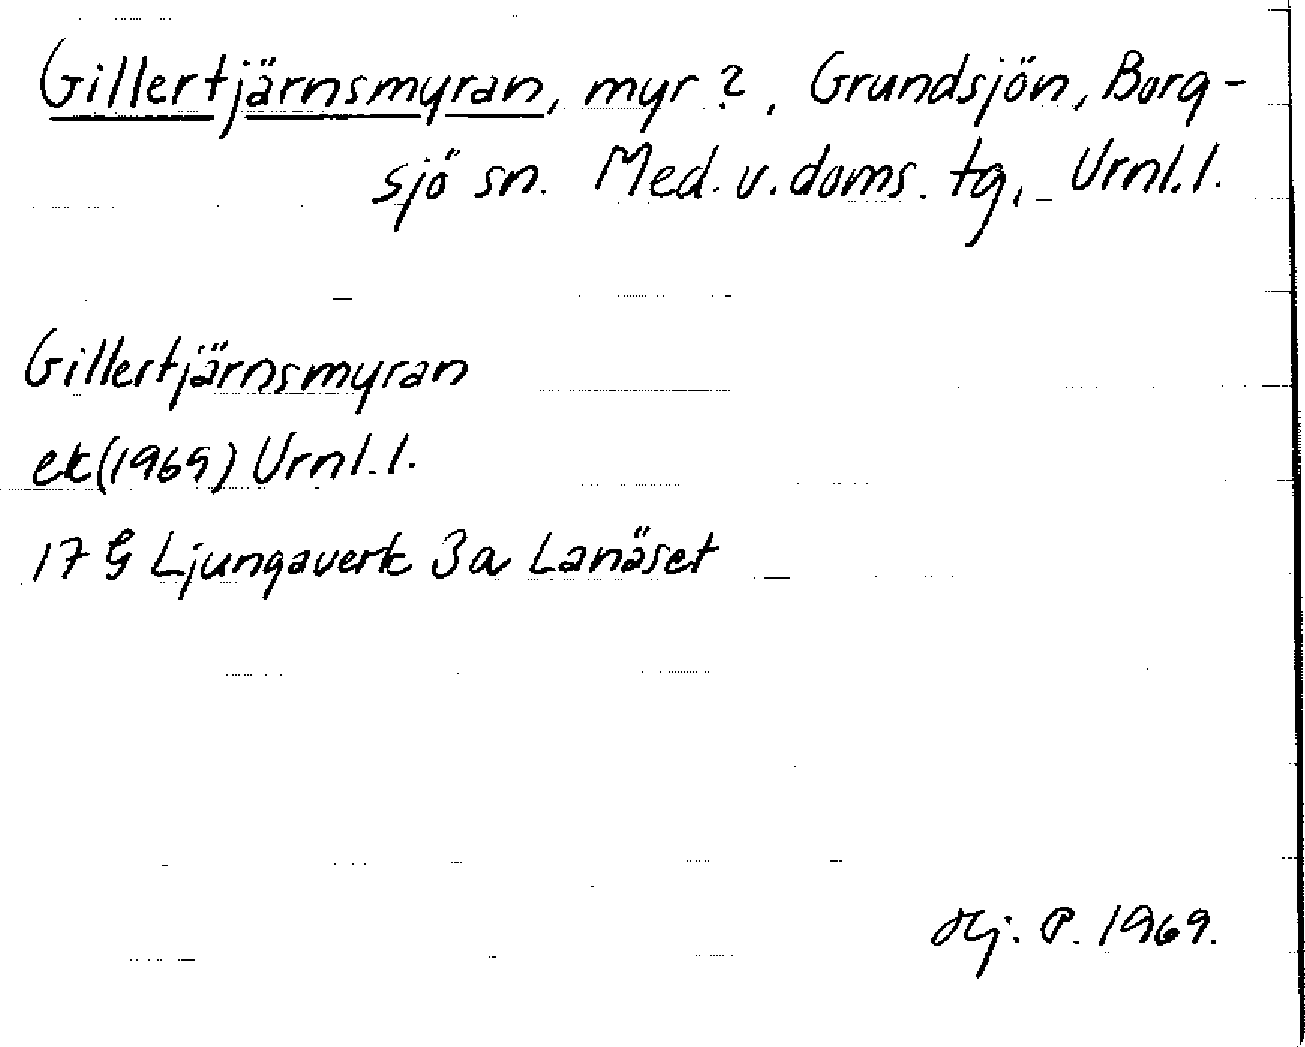 Gillertjärnsmyran, myr?, Grundsjön, Borg-
sjö sn. Med. v. doms. tg., Urnl. l.
Gillertjärnsmyran
ek (1969) Urnl. l.
17 G Ljungaverk 3a Lanäset
Hj. P. 1969.